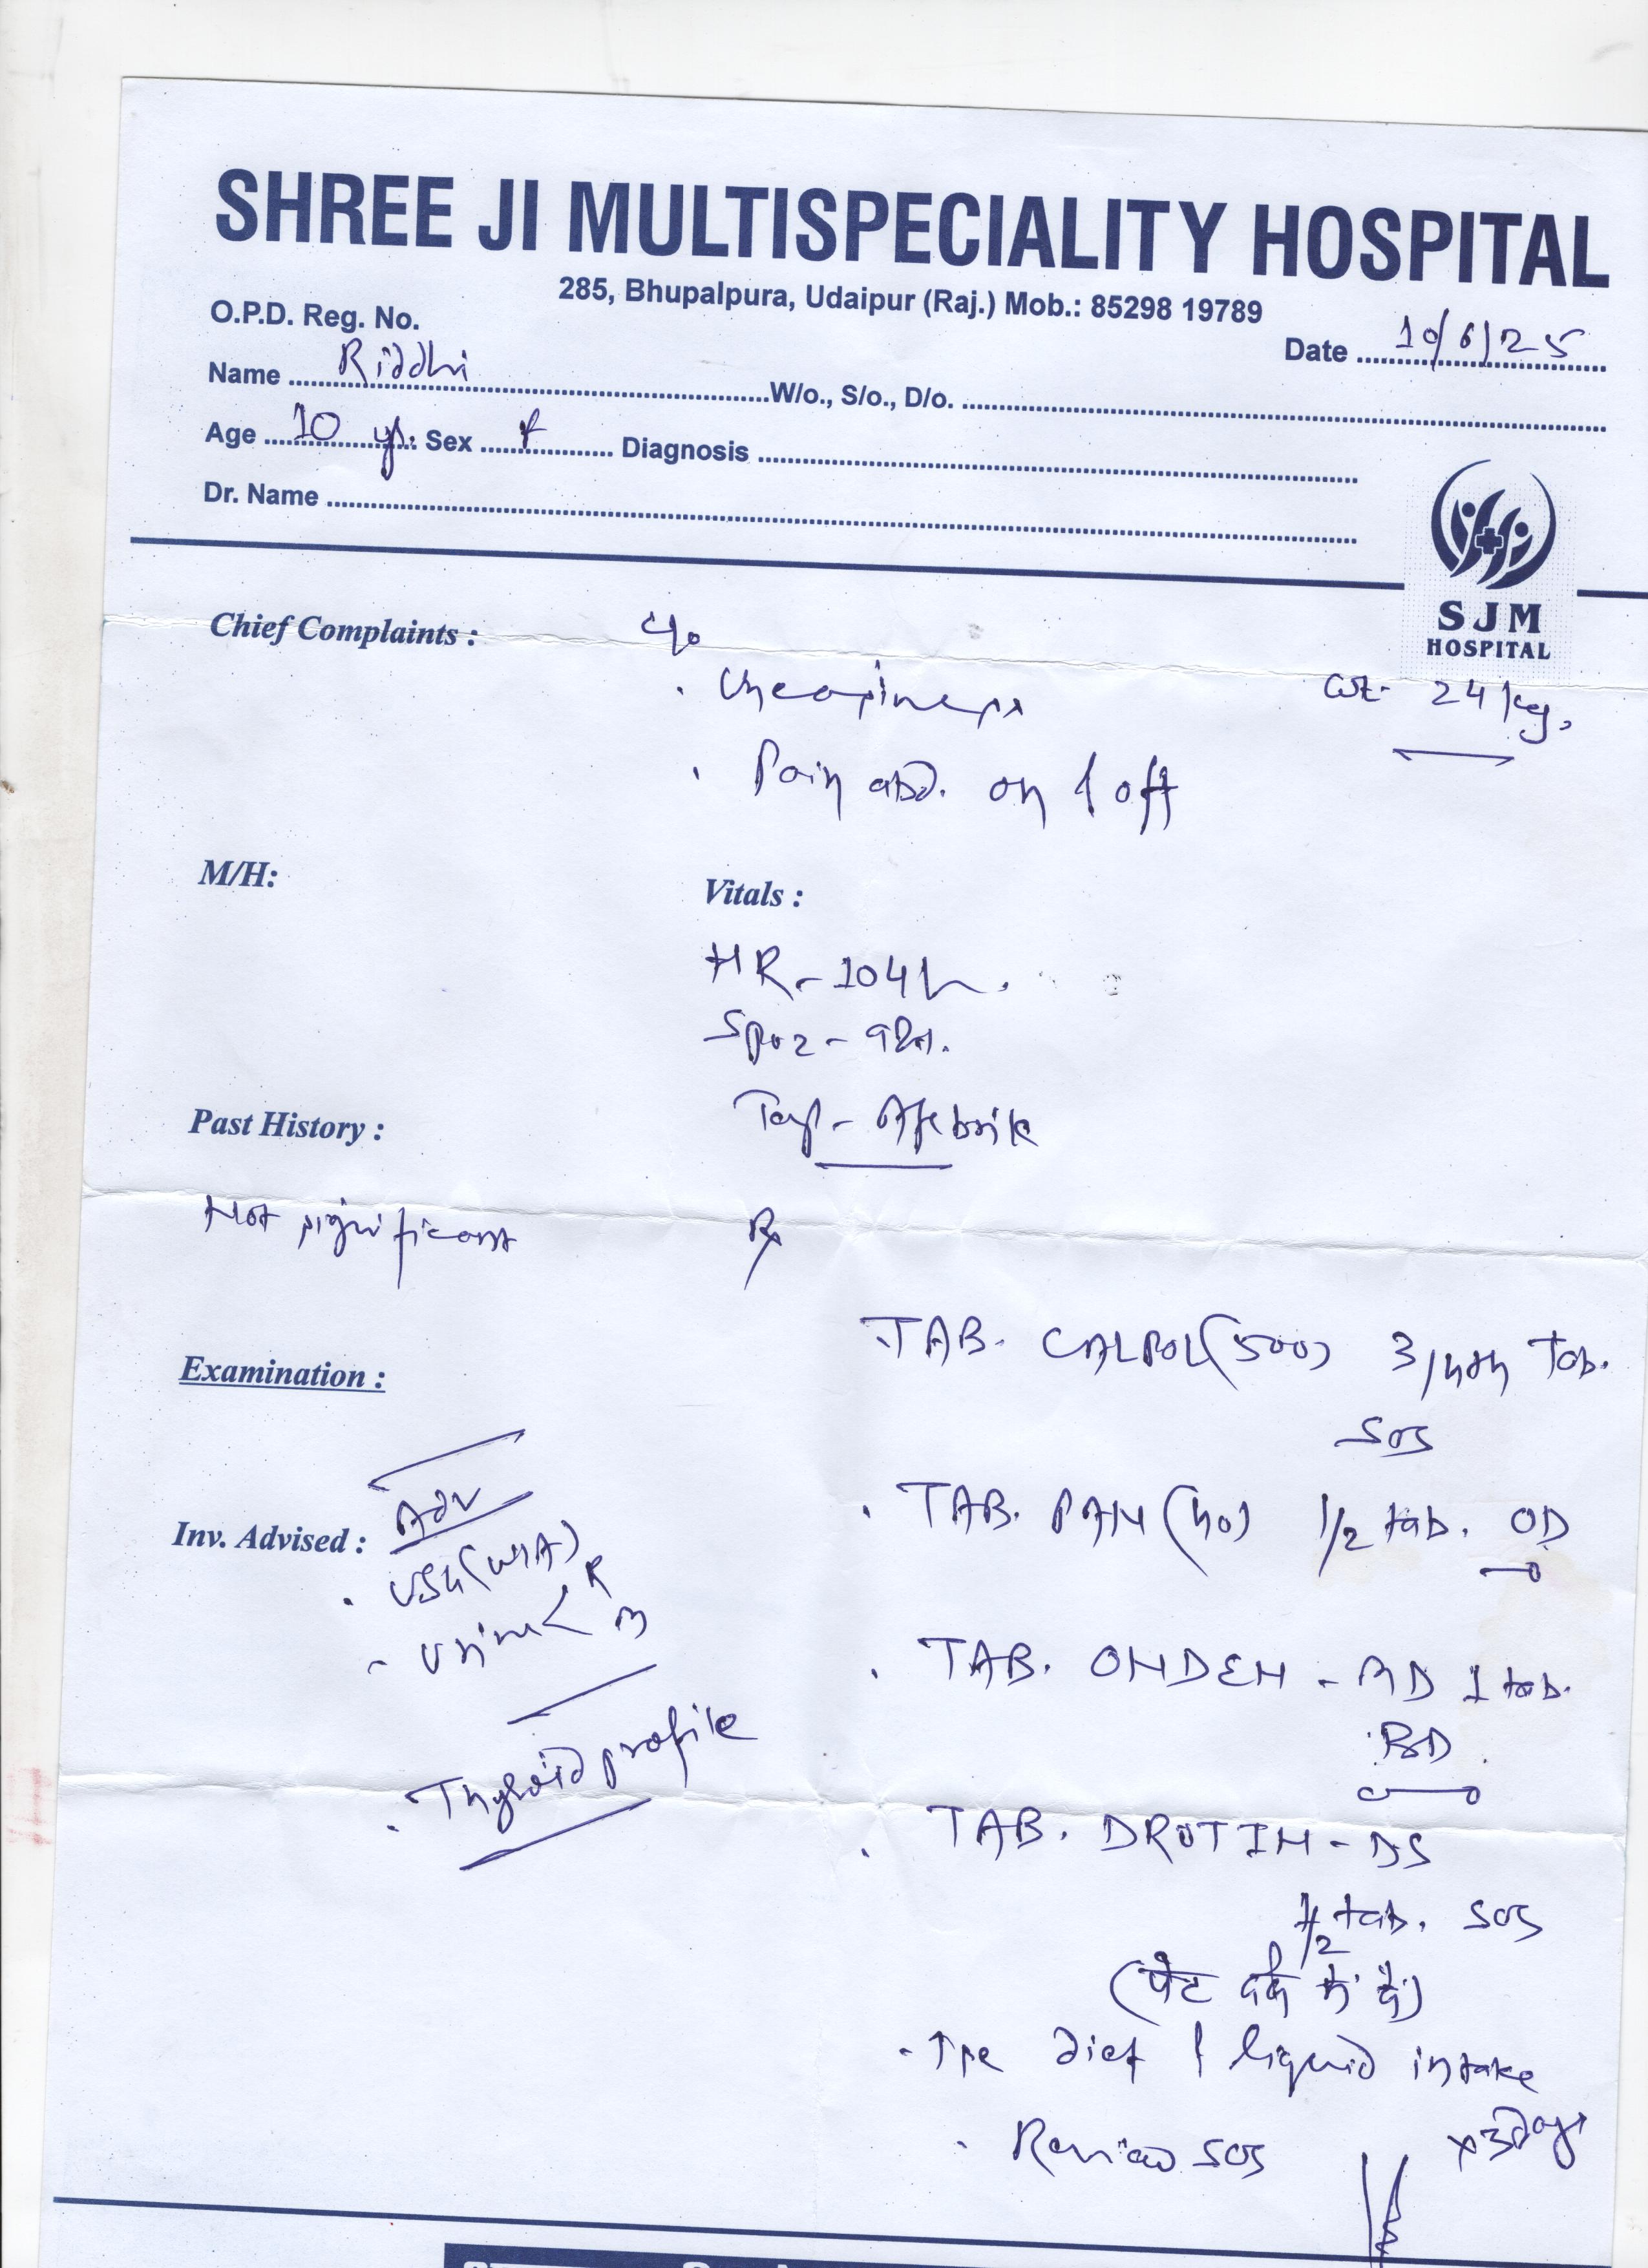 SHREE JI MULTISPECIALITY HOSPITAL
285, Bhupalpura, Udaipur (Raj.) Mob.: 85298 19789
O.P.D. Reg. No.
Date 10/6/25
Name Riddhi W/o., S/o., D/o.
Age 10 yr. Sex F Diagnosis
Dr. Name
SJM
HOSPITAL
Chief Complaints : c/o
Wt - 24 kg.
. Pain abd. on & off
M/H:
Vitals :
HR - 104
SpO2 -
Temp - Afebrile
Past History :
Not significant
Rx
TAB. CALPOL (500) 3/4th Tab.
SOS
Examination :
. TAB. PAN (40) 1/2 tab. OD
Inv. Advised :
Adv
. USG (W/A)
- Urine < R
M
. Thyroid profile
. TAB. ONDEN - MD 1 tab.
BD
. TAB. DROTIN - DS
1/2 tab. SOS
(पेट दर्द में दे)
diet & liquid intake
x 3 days
. Review SOS